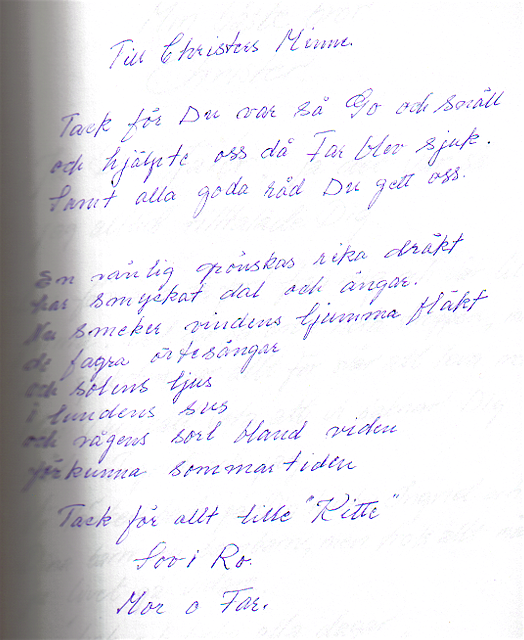 Till Christers Minne.
Tack för Du var så Go och snäll
och hjälpte oss då Far blev sjuk.
Samt alla goda råd Du gett oss.
En vänlig grönskas rika dräkt
har smyckat dal och ängar.
Nu smeker vindens ljumma fläkt
de fagra örtesängar
och solens ljus
i lundens sus
och vågens sorl bland viden
förkunna sommartiden
Tack för allt lille "Kitte"
Sov i Ro.
Mor o Far.